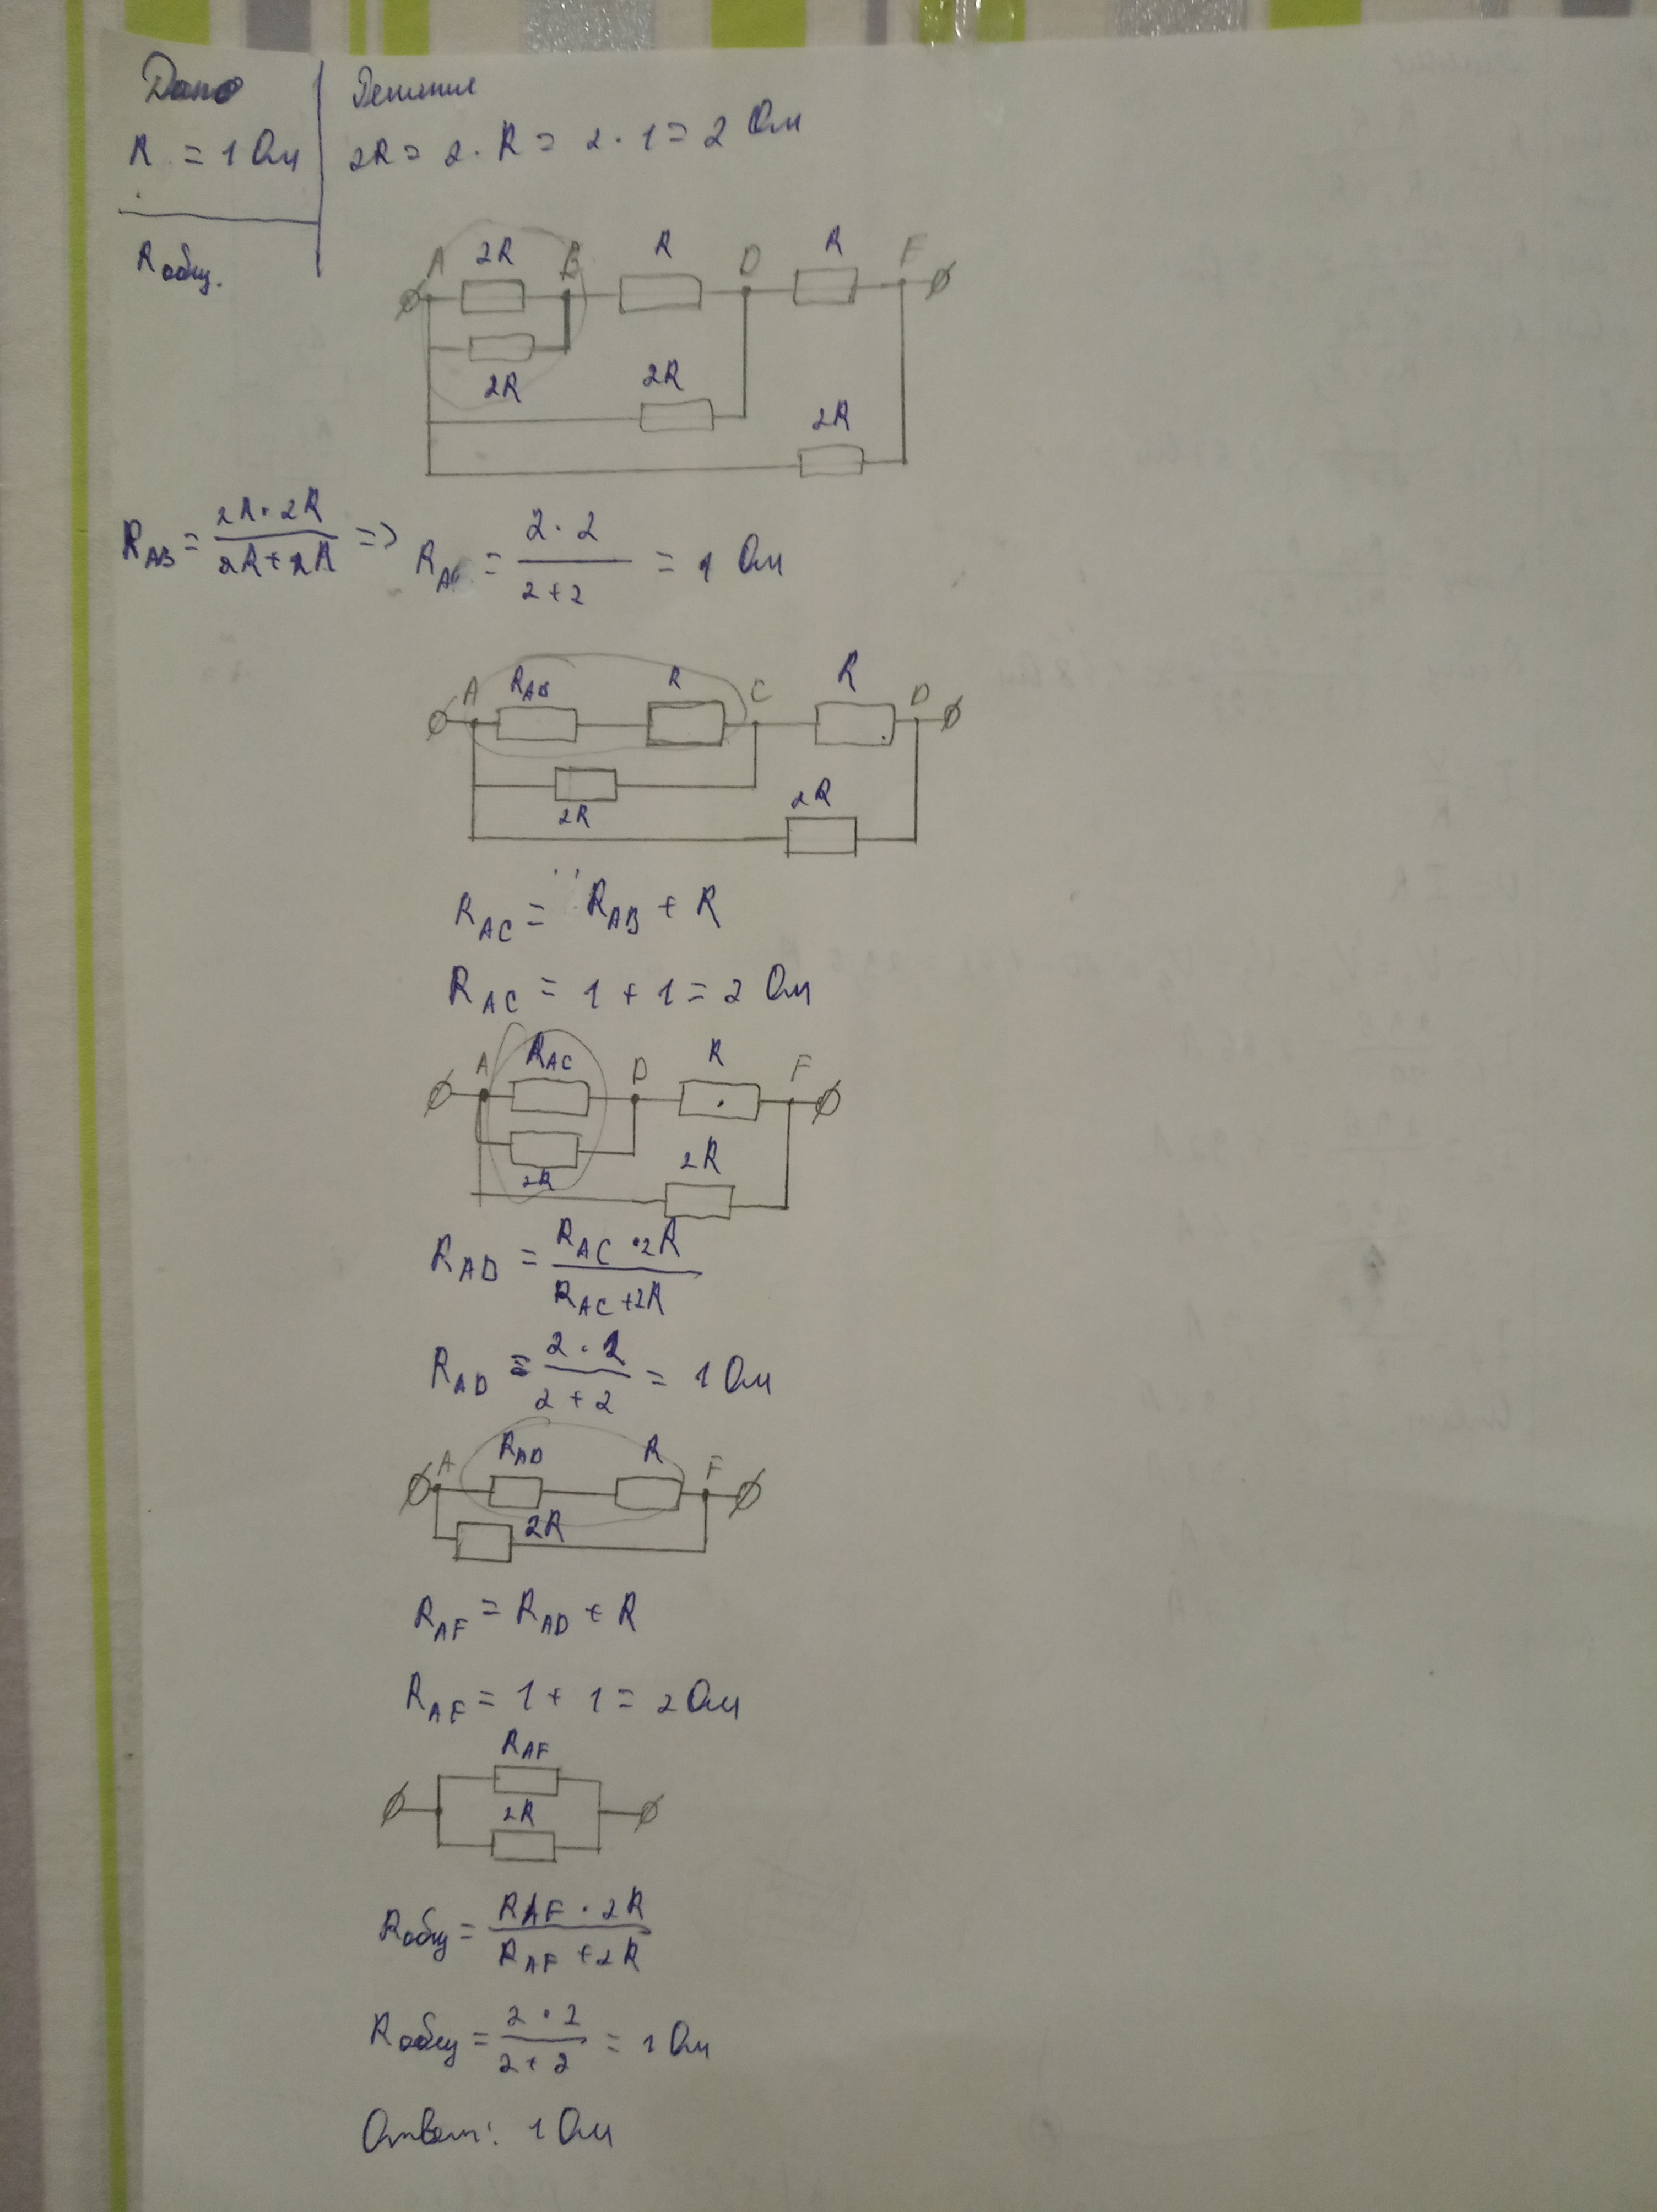 Дано
Решение
R = 1 Ом
2R = 2 · R = 2 · 1 = 2 Ом
Rобщ.
A 2R B R D R F
2R
2R
2R
R_AB = (2R · 2R)/(2R + 2R) =>
= (2 · 2)/(2 + 2) = 1 Ом
A R_AB R C R D
2R
2R
R_AC = R_AB + R
R_AC = 1 + 1 = 2 Ом
A R_AC D R F
2R
2R
R_AD = (R_AC · 2R)/(R_AC + 2R)
R_AD = (2 · 2)/(2 + 2) = 1 Ом
A R_AD R F
2R
R_AF = R_AD + R
R_AF = 1 + 1 = 2 Ом
R_AF
2R
Rобщ = (R_AF · 2R)/(R_AF + 2R)
Rобщ = (2 · 2)/(2 + 2) = 1 Ом
Ответ: 1 Ом